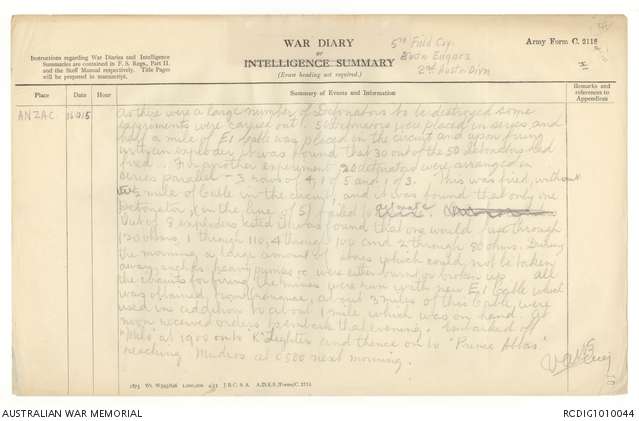 WAR DIARY
or
INTELLIGENCE SUMMARY
(Erase heading not required.)
5th Field Coy.
Engrs
2nd Austn Divn
Army Form C. 2118
Instructions regarding War Diaries and Intelligence
Summaries are contained in F. S. Regs., Part II.
and the Staff Manual respectively. Title Pages
will be prepared in manuscript.
Place
Date
Hour
Summary of Events and Information
Remarks and
references to
Appendices
ANZAC
As there were a large number of Detonators to be destroyed some
experiments were carried out. 50 detonators were placed in series and
half a mile of E1 Cable was placed in the circuit and upon firing
with an exploder, it was found that 30 out of the 50 detonators had
fired. For another experiment 20 detonators were arranged in
series parallel - 3 rows of 4, 1 of 5 and 1 of 3. This was fired, without
mile of Cable in the circuit, and it was found that only one
Detonator, (in the line of 5) failed to detonate.
Out of 8 exploders tested it was found that one would fuse through
120 ohms, 1 through 110, 4 through 100 and 2 through 80 ohms. During
the morning, a large amount of stores which could not be taken
away, such as heavy pumps &c were either buried or broken up. All
the circuits for firing the mines were run with new E1 Cable which
was obtained from Ordnance, about 3 miles of this Cable were
used in addition to about 1 mile which was on hand. At
noon received orders to embark that evening. Embarked off
"Milo" at 1900 onto "K" Lighter and thence on to "Prince Abbas"
reaching Mudros at 0500 next morning.
1875 Wt. W593/826 1,000,000 4/15 J.B.C. & A. A.D.S.S./Forms/C. 2118.
AUSTRALIAN WAR MEMORIAL
RCDIG1010044